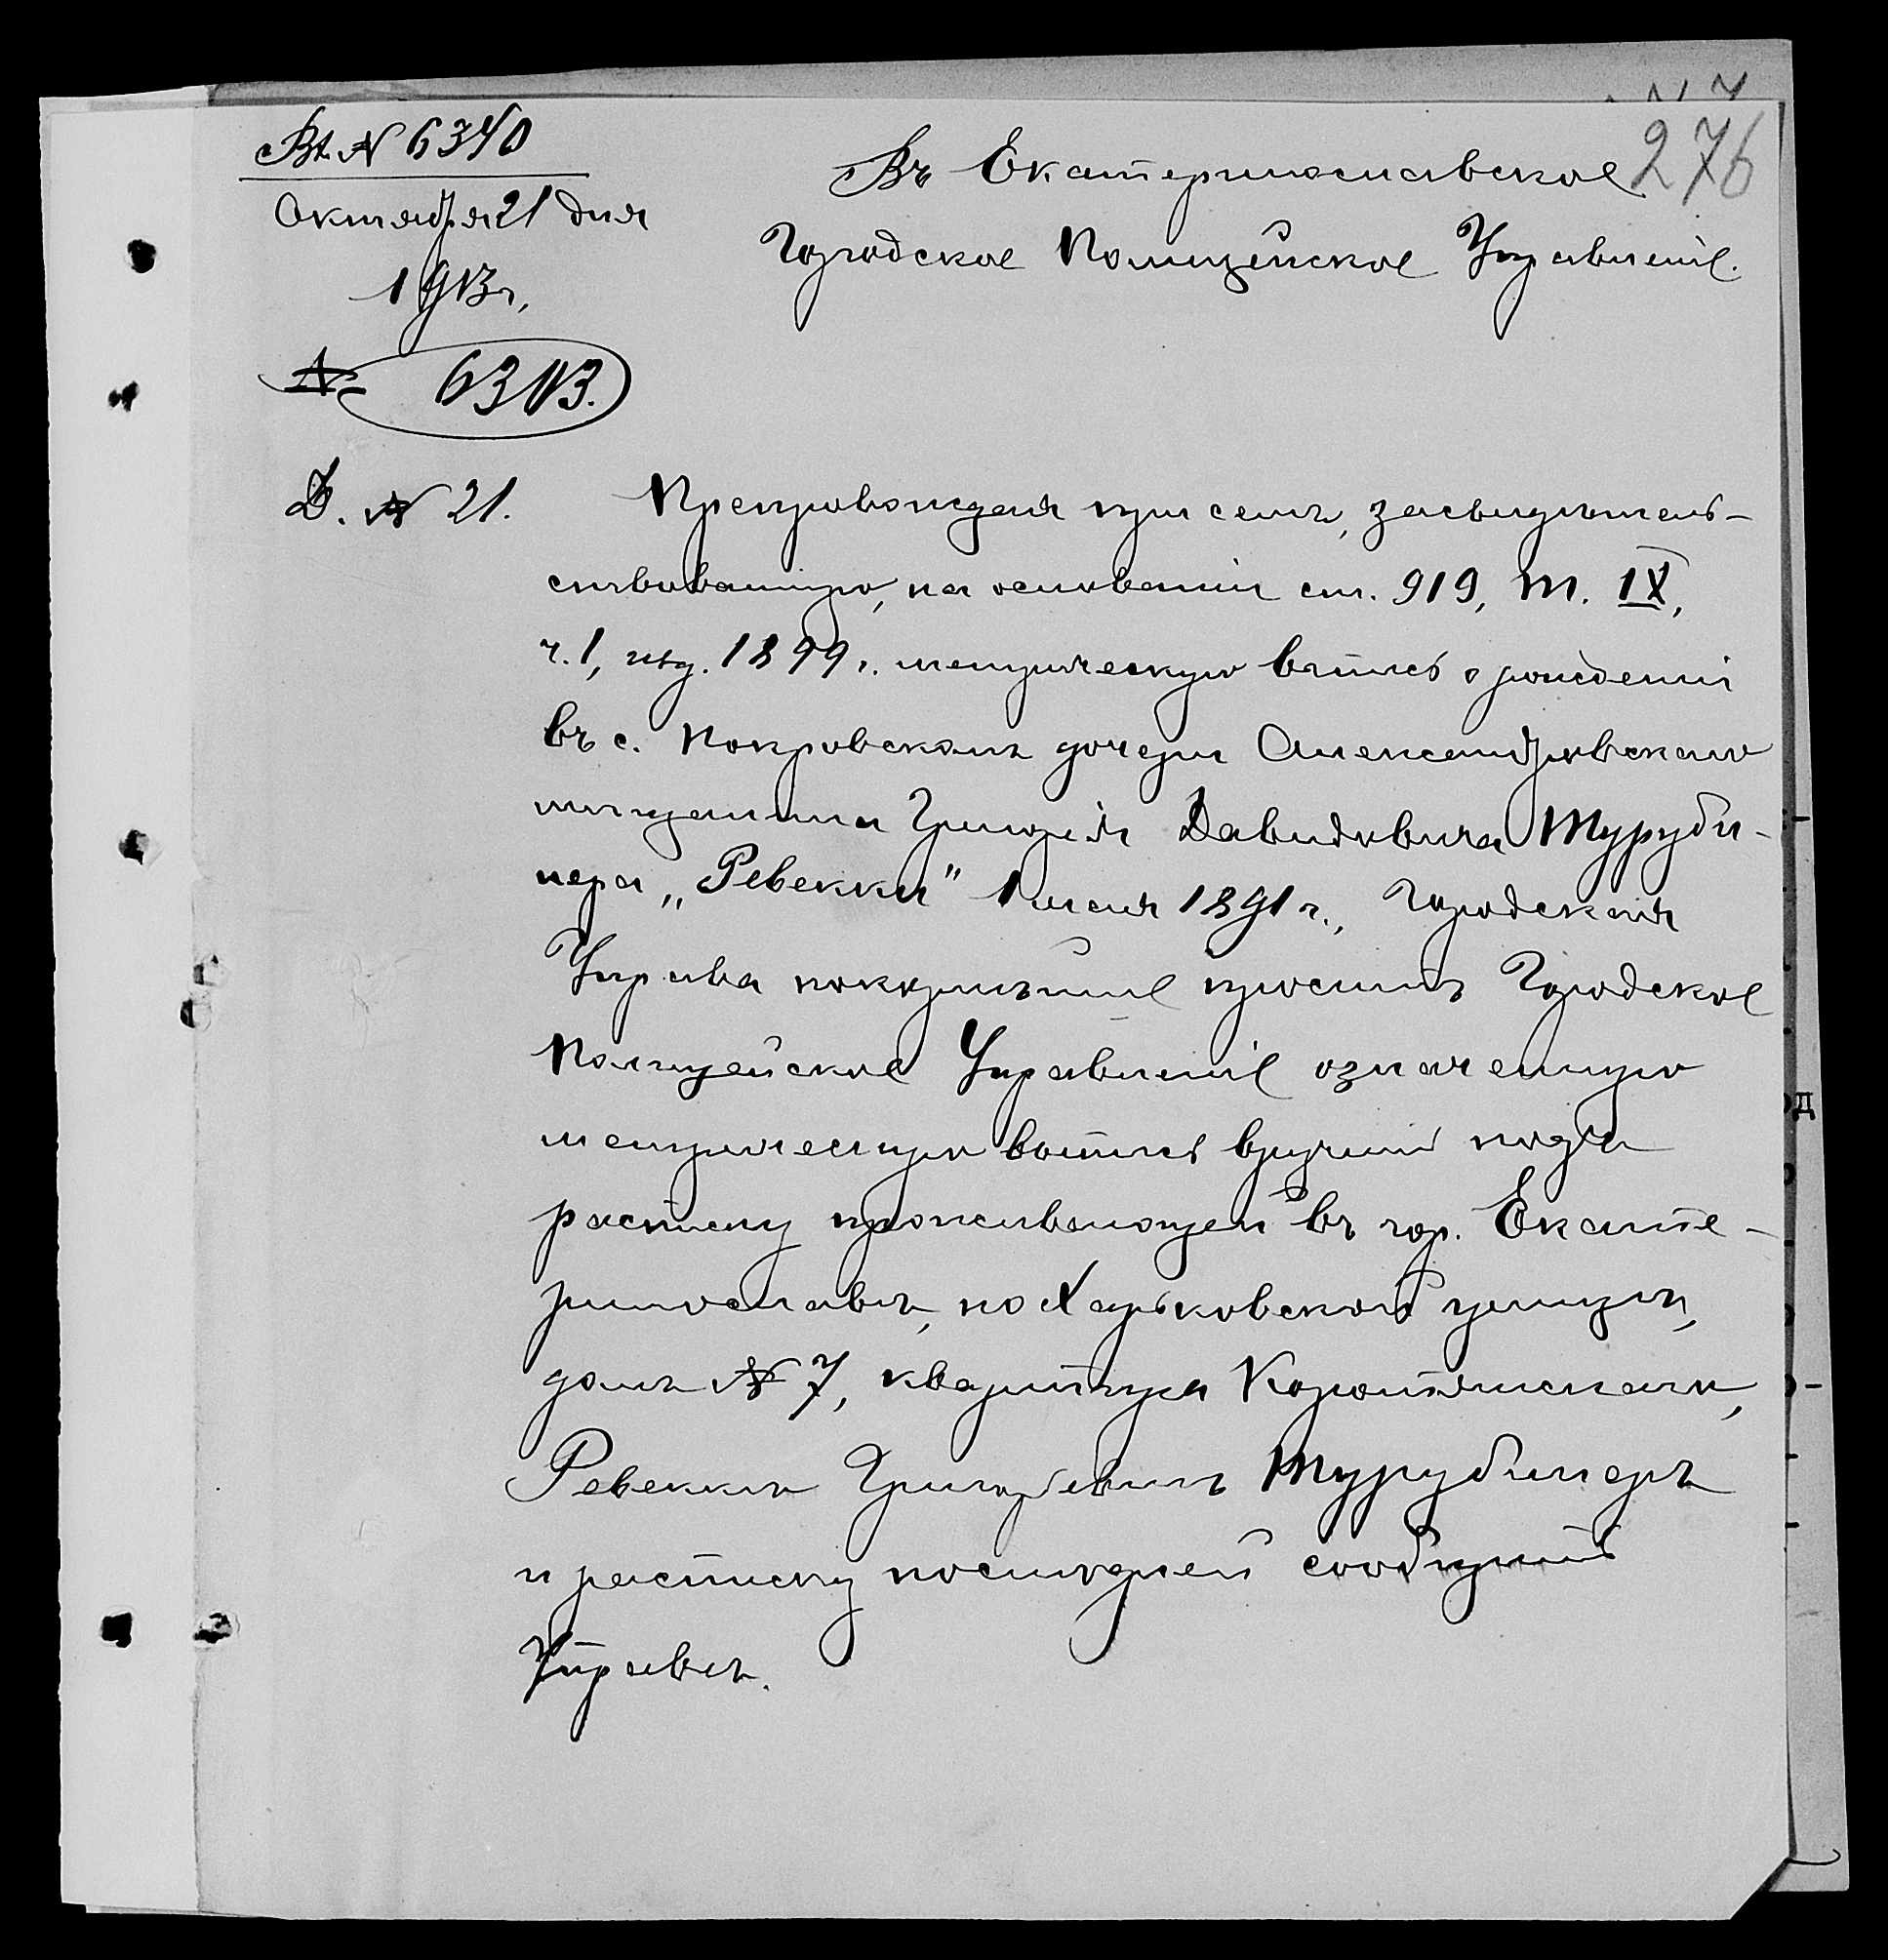 Вх. № 6340
276
Въ Екатеринославское
Октября 21 дня
Городское Полицейское Управленіе.
1913 г.
№ 6313.
Д. № 21.
Препровождая при семъ, засвидѣтель-
ствованную, на основаніи ст. 919, т. IX,
ч. 1, изд. 1899 г. метрическую выпись о рожденіи
въ с. Покровскомъ дочери Александровскаго
мѣщанина Григорія Давидовича Туруби-
нера „Ревекки" 1 мая 1891 г., Городская
Управа покорнѣйше проситъ Городское
Полицейское Управленіе означенную
метрическую выпись вручить подъ
расписку проживающей въ гор. Екате-
ринославѣ, по Харьковской улицѣ,
домъ № 7, квартира
Ревеккѣ Григорьевнѣ Турубинеръ
и расписку послѣдней сообщить
Управѣ.